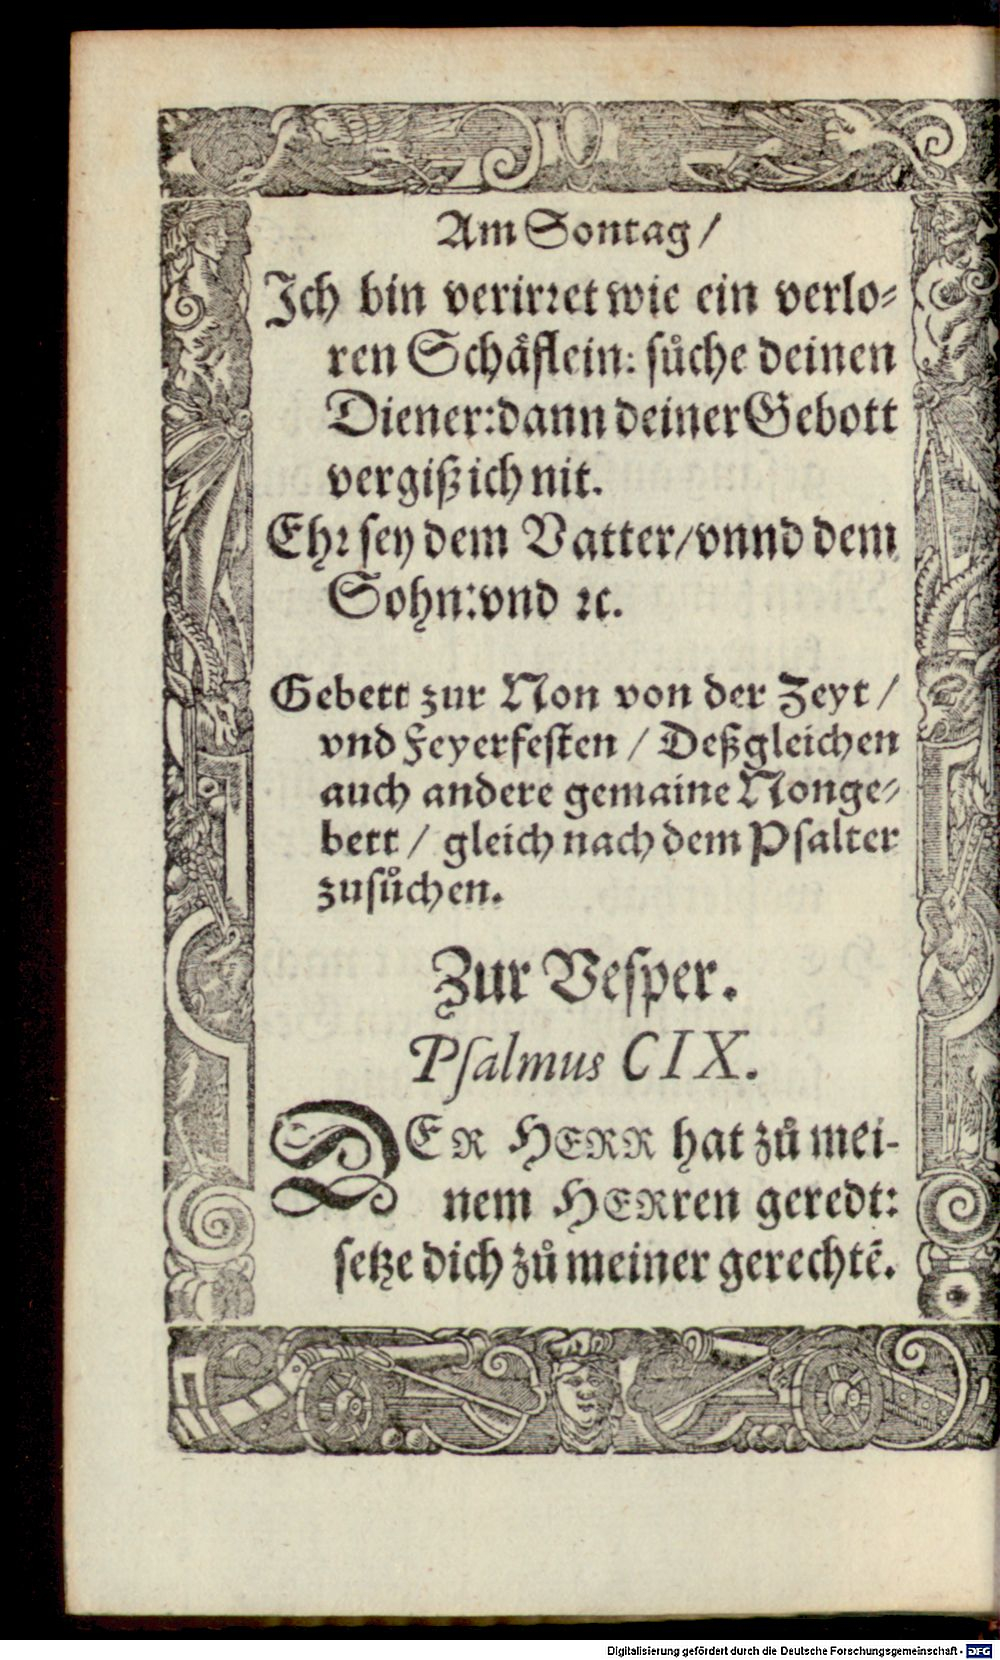 Am Sontag /
Ich bin verirꝛet wie ein verlo⸗
ren Schäflein: sůche deinen
Diener: dann deiner Gebott
vergiß ich nit.
Ehꝛ sey dem Vatter/ vnnd dem
Sohn: vnd ꝛc.
Gebett zur Non von der Zeyt /
vnd Feyerfesten / Deßgleichen
auch andere gemaine Nonge⸗
bett / gleich nach dem Psalter
zusůchen.
Zur Vesper.
Psalmus CIX.
DER HERR hat zů mei-
nem HERren geredt:
setze dich zů meiner gerechtē.
Digitalisierung gefördert durch die Deutsche Forschungsgemeinschaft - DFG